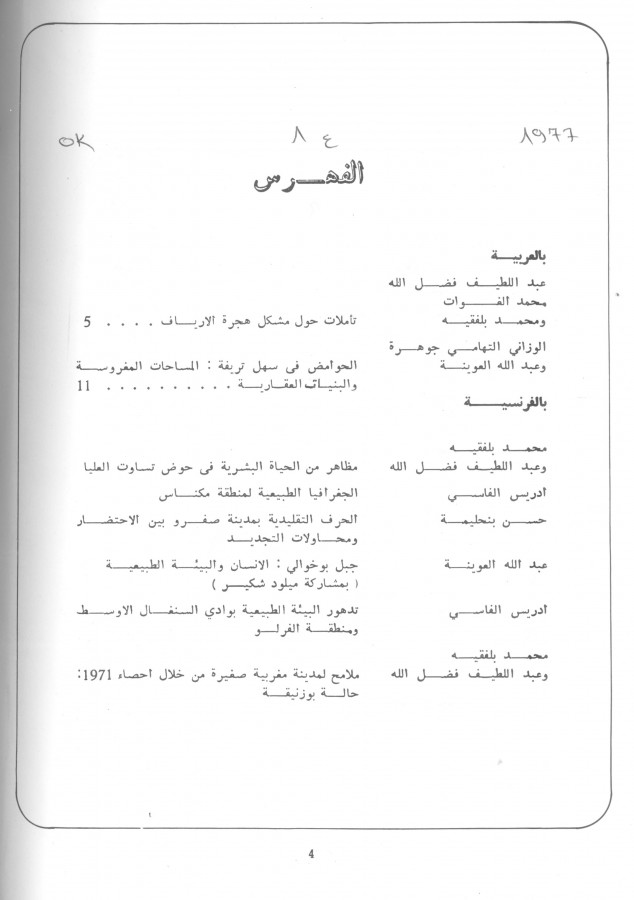 1977
ع 1
OK
الفهرس
بالعربية
عبد اللطيف فضل الله
محمد الفوات
ومحمد بلفقيه تأملات حول مشكل هجرة الارياف . . . . 5
الوزاني التهامي جوهرة
وعبد الله العوينة الحوامض فى سهل تريفة : المساحات المغروسة
والبنيات العقارية . . . . . . . . . . 11
بالفرنسية
محمد بلفقيه
وعبد اللطيف فضل الله مظاهر من الحياة البشرية فى حوض تساوت العليا
ادريس الفاسي الجغرافيا الطبيعية لمنطقة مكناس
حسن بنحليمة الحرف التقليدية بمدينة صفرو بين الاحتضار
ومحاولات التجديد
عبد الله العوينة جبل بوخوالي : الانسان والبيئة الطبيعية
( بمشاركة ميلود شكير )
ادريس الفاسي تدهور البيئة الطبيعية بوادي السنغال الاوسط
ومنطقة الفرلو
محمد بلفقيه
وعبد اللطيف فضل الله ملامح لمدينة مغربية صغيرة من خلال احصاء 1971:
حالة بوزنيقة
4